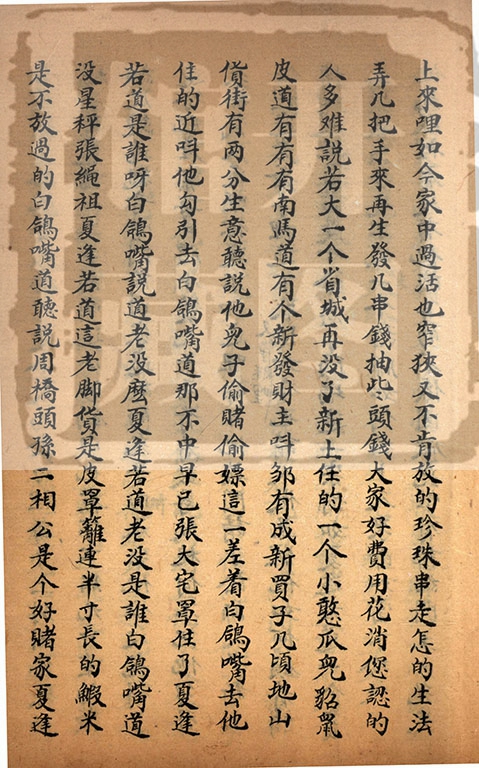 上來哩如今家中過活也窄狹又不肯放的珍珠串走怎的生法
弄几把手來再生發几串錢抽些頭錢大家好費用花消您認的
人多难説若大一个省城再没了新上任的一个小憨瓜皃貂鼠
皮道有有有南馬道有个新發財主呌邹有成新買子几頃地山
貨街有两分生意聽説他皃子偷賭偷嫖這一差着白鴿嘴去他
住的近呌他勾引去白鴿嘴道那不中早已張大宅罩住了夏逢
若道是誰呀白鴿嘴説道老没麽夏逢若道老没是誰白鴿嘴道
没星秤張繩祖夏逢若道這老脚貨是皮罩籬連半寸長的蝦米
是不放過的白鴿嘴道聽説周橋頭孫二相公是个好賭家夏逢